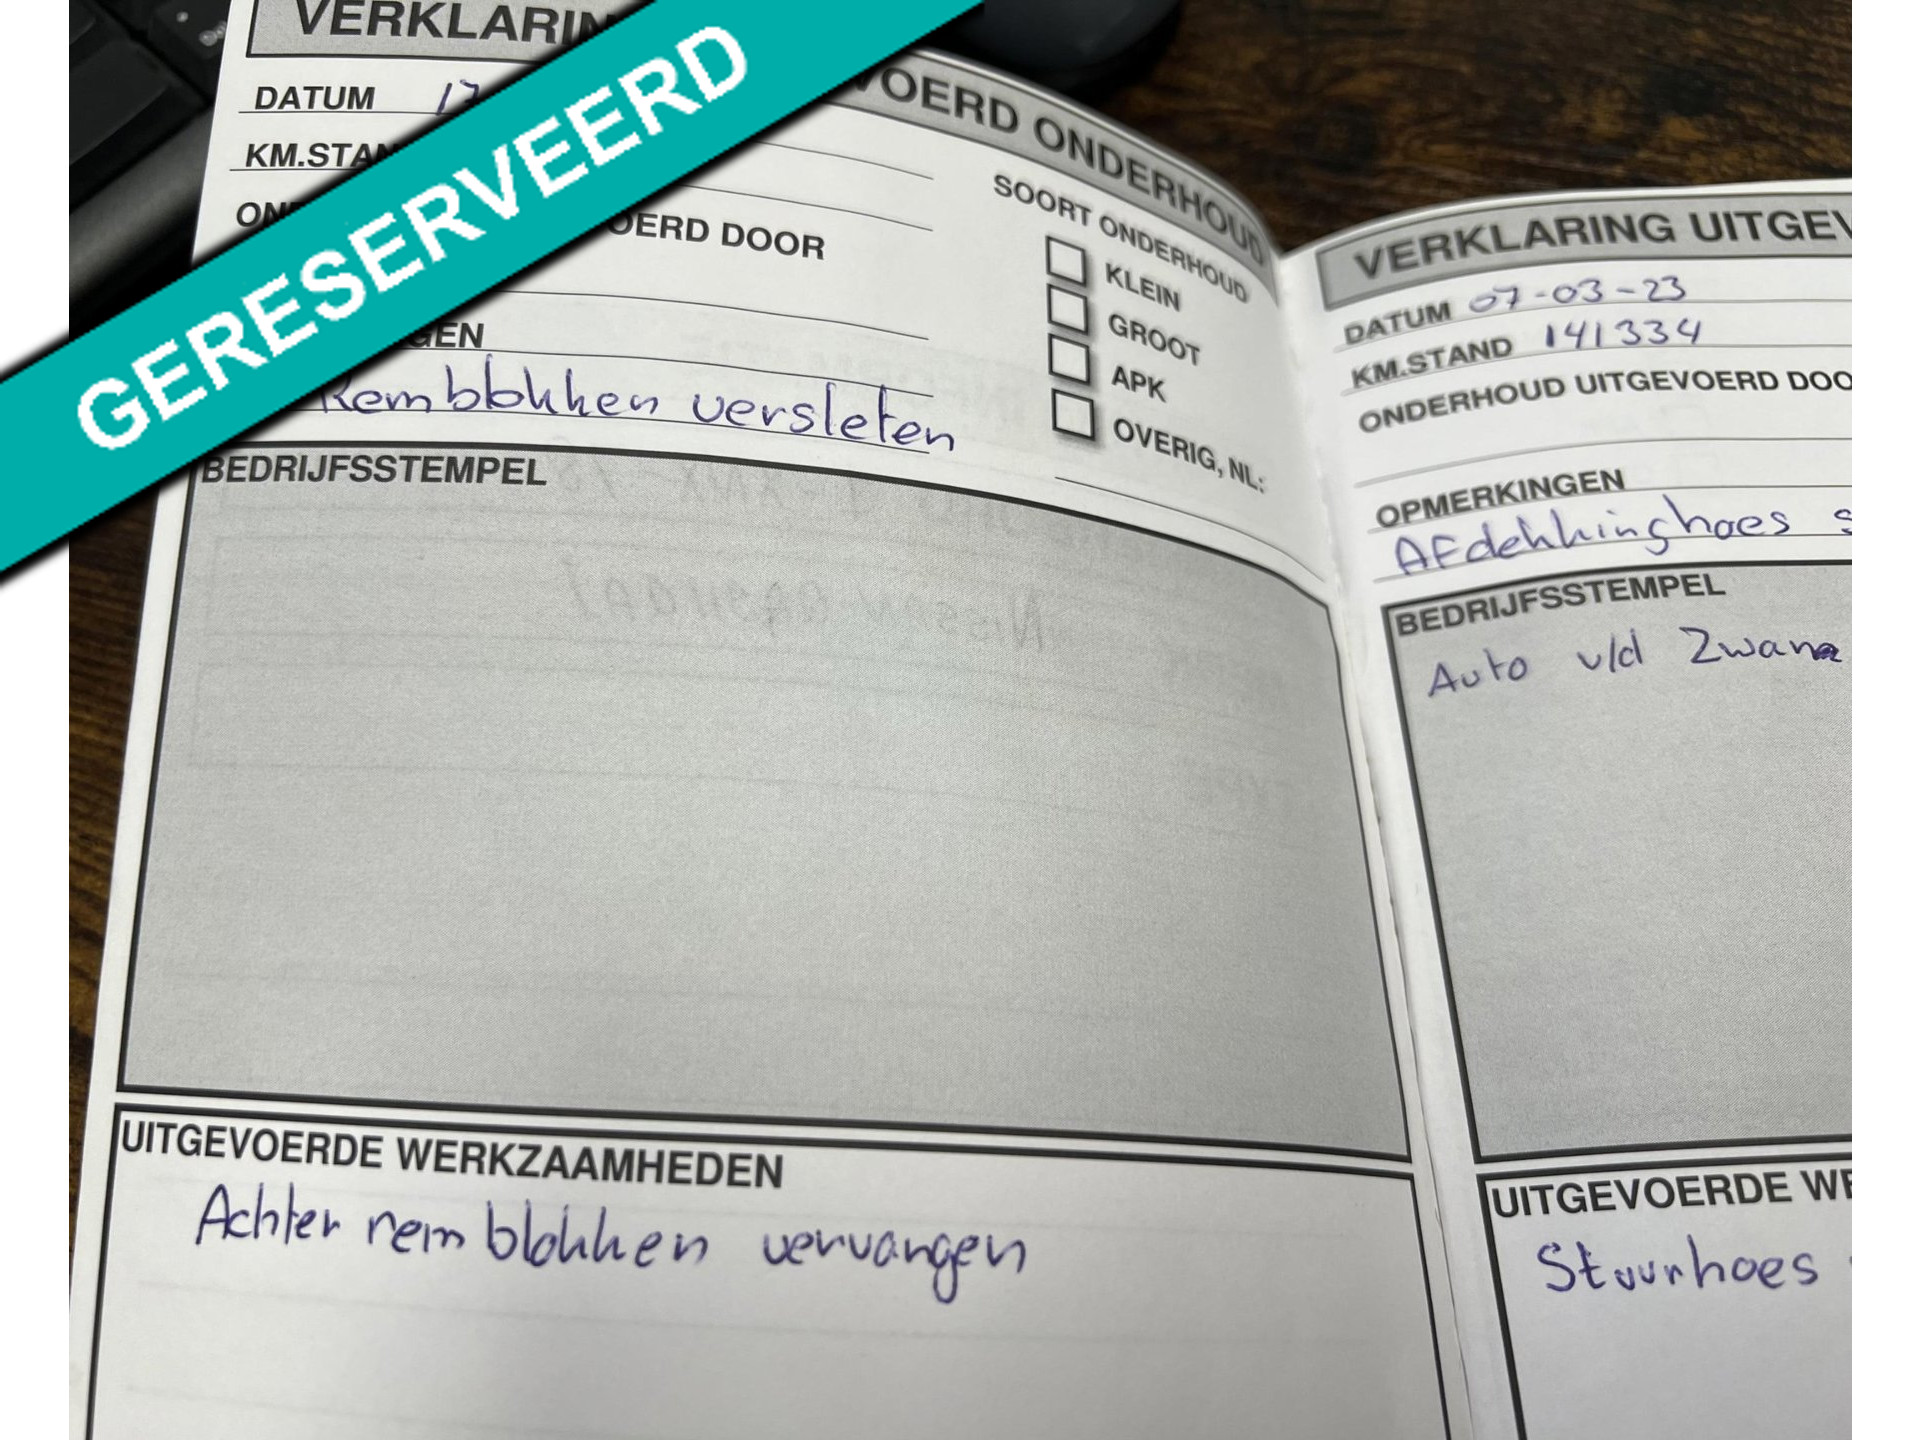 GERESERVEERD
VERKLARIN
VOERD ONDERHOUD
DATUM 17
KM.STAN
OERD DOOR
GEN
Remblokken versleten
SOORT ONDERHOUD
KLEIN
GROOT
APK
OVERIG, NL:
BEDRIJFSSTEMPEL
UITGEVOERDE WERKZAAMHEDEN
Achter rem blokken vervangen
VERKLARING UITGEV
DATUM 07-03-23
KM.STAND 141334
ONDERHOUD UITGEVOERD DOO
OPMERKINGEN
Afdekkinghoes s
BEDRIJFSSTEMPEL
Auto v/d Zwan
UITGEVOERDE WE
Stuurhoes